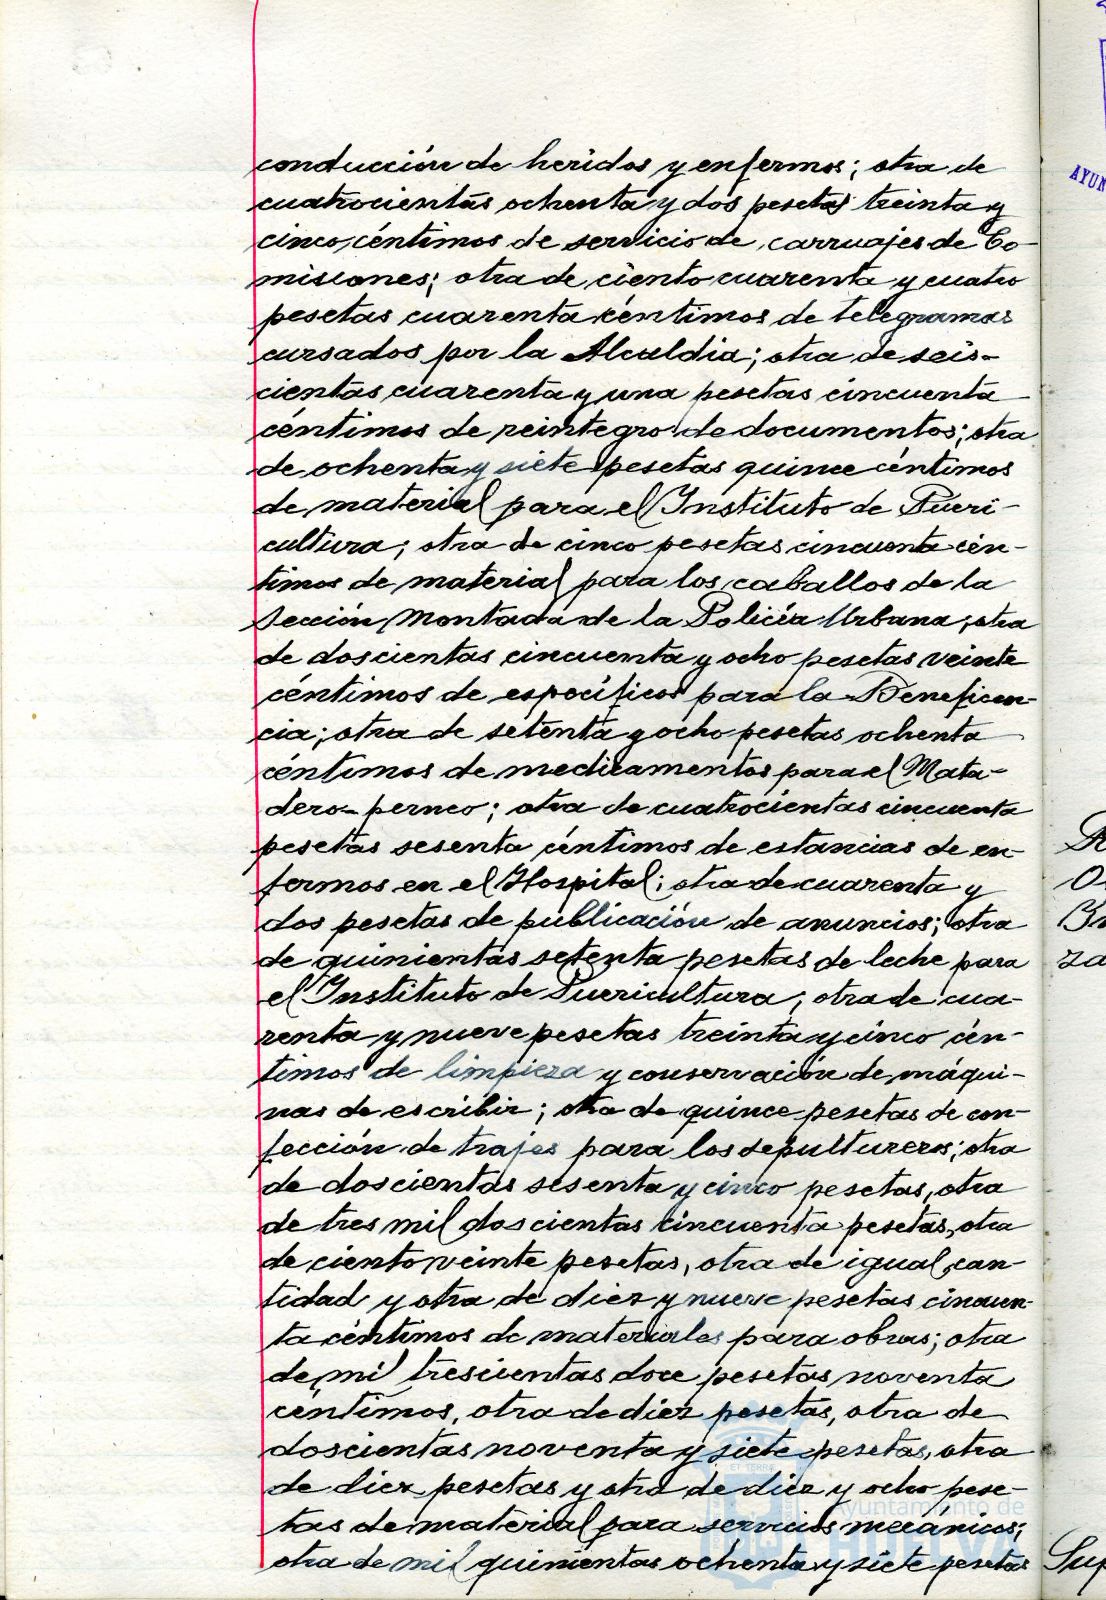 conducción de heridos y enfermos; otra de
cuatrocientas ochenta y dos pesetas treinta y
cinco céntimos de servicio de carruajes de Co-
misiones; otra de ciento cuarenta y cuatro
pesetas cuarenta céntimos de telegramas
cursados por la Alcaldia; otra de seis-
cientas cuarenta y una pesetas cincuenta
céntimos de reintegro de documentos; otra
de ochenta y siete pesetas quince céntimos
de material para el Instituto de Pueri-
cultura; otra de cinco pesetas cincuenta cén-
timos de material para los caballos de la
Sección Montada de la Policía Urbana; otra
de doscientas cincuenta y ocho pesetas veinte
céntimos de específicos para la Beneficen-
cia; otra de setenta y ocho pesetas ochenta
céntimos de medicamentos para el Mata-
dero-perneo; otra de cuatrocientas cincuenta
pesetas sesenta céntimos de estancias de en-
fermos en el Hospital; otra de cuarenta y
dos pesetas de publicación de anuncios; otra
de quinientas setenta pesetas de leche para
el Instituto de Puericultura; otra de cua-
renta y nueve pesetas treinta y cinco cén-
timos de limpieza y conservación de máqui-
nas de escribir; otra de quince pesetas de con-
fección de trajes para los sepultureros; otra
de doscientas sesenta y cinco pesetas, otra
de tres mil doscientas cincuenta pesetas, otra
de ciento veinte pesetas, otra de igual can-
tidad y otra de diez y nueve pesetas cincuen-
ta céntimos de materiales para obras; otra
de mil trescientas doce pesetas noventa
céntimos, otra de diez pesetas, otra de
doscientas noventa y siete pesetas, otra
de diez pesetas y otra de diez y ocho pese-
tas de material para servicios mecánicos;
otra de mil quinientas ochenta y siete pesetas
Ayuntamiento de
HUELVA
AYUN
za
Sup